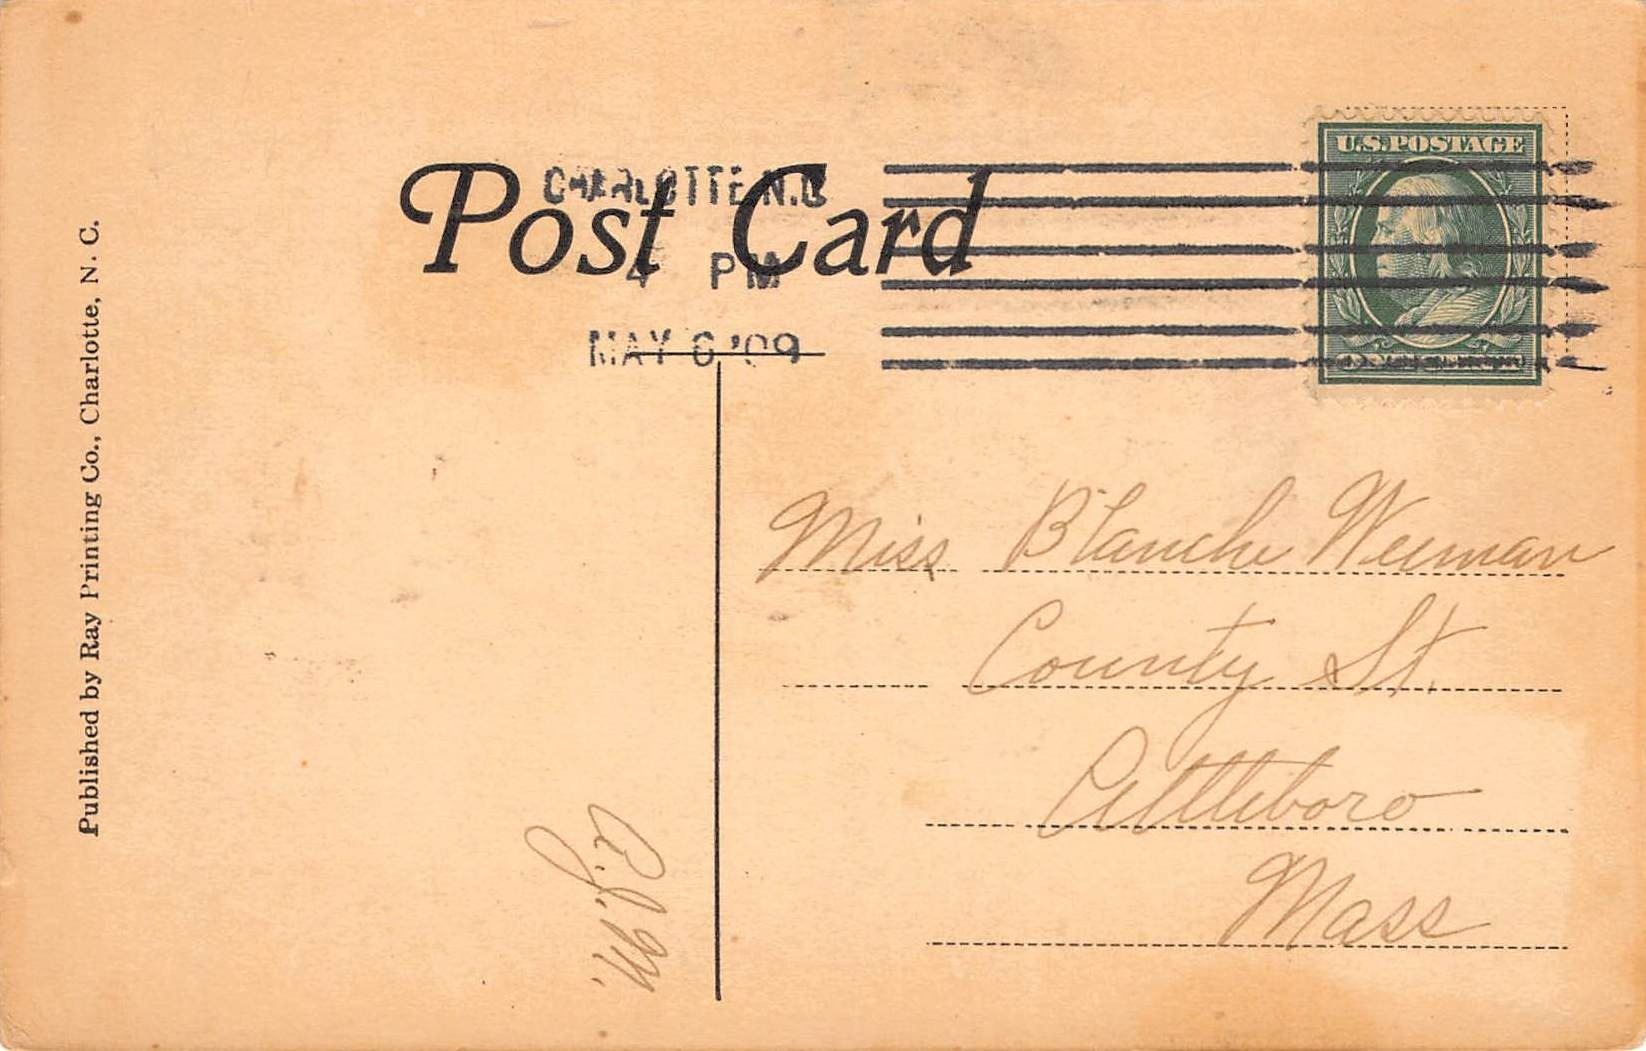 Post Card
CHARLOTTE N.C
4 PM
MAY 6 '09
U.S.POSTAGE
Published by Ray Printing Co., Charlotte, N. C.
Miss Blanche
County St.
Attleboro
Mass